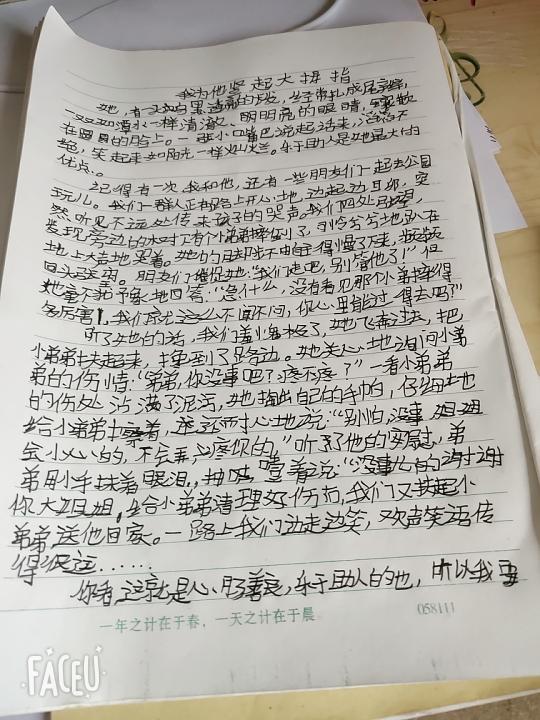 我为他竖起大拇指
她,有一双乌黑清亮的头发,经常扎成马尾辫,
一双如潭水一样清澈、明明亮的眼睛,
在圆圆的脸上。一张小嘴巴说起话来,滔滔不
绝,笑起来如阳光一样灿烂。乐于助人是她最大的
优点。
记得有一次,我和他,还有一些朋友们一起去公园
玩儿。我们一群人正在路上开心地,突
然,听见不远处传来孩子的哭声。我们四处张望,
发现旁边的有个小弟弟摔倒了,孤伶兮兮地趴在
地上大声地哭着。她的脚步不由得慢了下来,
回头张望。朋友们催促她:“我们走吧,别管他了!”但
她毫不犹豫地回答:“急什么,没有看见那个小弟弟摔得
多厉害!,我们就这么不闻不问,你心里能过得去吗?”
听了她的话,我们羞愧极了,她飞奔过去,把
小弟弟扶起来,撞到了路边。她关心地询问小弟
弟的伤情:“弟弟,你没事吧?疼不疼?”一看小弟弟
的伤处沾满了泥污,她掏出自己的手帕,仔细地
给小弟弟擦着,亲还耐心地说:“别怕,没事,姐姐
会小心的,不会弄疼你的,”听了他的安慰,弟
弟用小手抹着眼泪,抽噎着说:“没事的谢谢
你大姐姐,给小弟弟清理好伤口,我们又扶起小
弟弟,送他回家。一路上我们边走边笑,欢声笑语传
得很远……
你看,这就是心肠善良,乐于助人的他,所以我要
一年之计在于春,一天之计在于晨
058111
FACEU